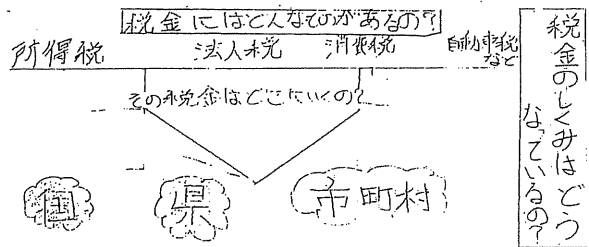 税金のしくみはどう
なっているの?
税金にはどんなものがあるの?
所得税 法人税 消費税 自動車税
など
その税金はどこにいくの?
国 県 市町村